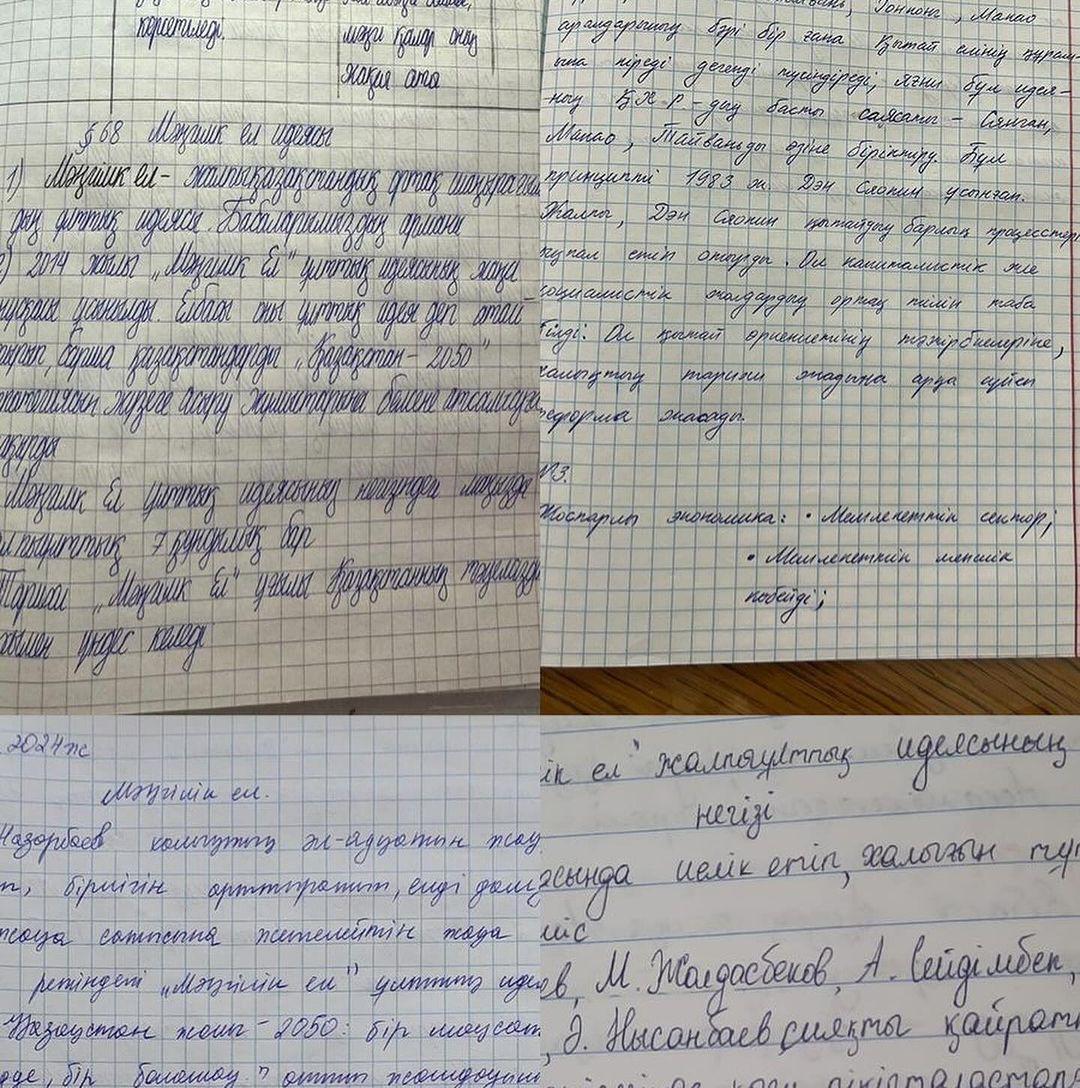 көрсетіледі.
мәңгі қалар оның
жақия ата
§68 Мәңгілік ел идеясы
1) Мәңгілік ел - жалпықазақстандық ортақ шаңырағы
дың ұлттық идеясы. Бабаларымыздың арманы
2) 2014 жылы „Мәңгілік Ел" ұлттық идеясының жаңа
нұсқасы ұсынылды. Елбасы оны ұлттық идея деп атай
отырып, барша қазақстандарды „Қазақстан - 2050"
стратегиясын жүзеге асыру жұмыстарына белсене атсалысуға
шақырды
Мәңгілік Ел ұлттық идеясының негізінде маңызды
жалпыұлттық 7 құндылық бар
Тарихи „Мәңгілік Ел" ұғымы Қазақстанның тәуелсізді
үндес келеді
Гонконг, Макао
аралдарының бәрі бір ғана Қытай елінің құрам-
ына кіреді дегенді түсіндіреді, яғни бұл идея-
ның ҚХР-дың басты саясаты - Сянган,
Макао, Тайваньды өзіне біріктіру. Бұл
принципті 1983 ж. Дэн Сяопин ұсынған.
Жалпы, Дэн Сяопин қытайдың барлық процестері
ықпал етіп отырды. Ол капиталистік және
социалистік жолдардың ортақ тілін таба
білді. Ол қытай өркениетінің тәжірбиелеріне,
халықтың тарихи жадына арқа сүйеп
реформа жасады.
№3.
Жоспарлы экономика: • Мемлекеттік сектор;
• Мемлекеттік меншік
көбейді;
2024ж
Мәңгілік ел.
Назарбаев халықтың әл-ауқатын
бірлігін арттыратын, енді
жаңа сатысына жетелейтін жаңа
ретіндегі „Мәңгілік ел" ұлттық идея
Қазақстан жолы - 2050: бір мақсат
бір болашақ" атты жолдауын
ік ел" жалпыұлттық идеясының
негізі
асында иелік етіп, халығын
міс
ев, М. Жолдасбеков, А. Сейдімбек,
, Ә. Нысанбаев сияқты қайратк